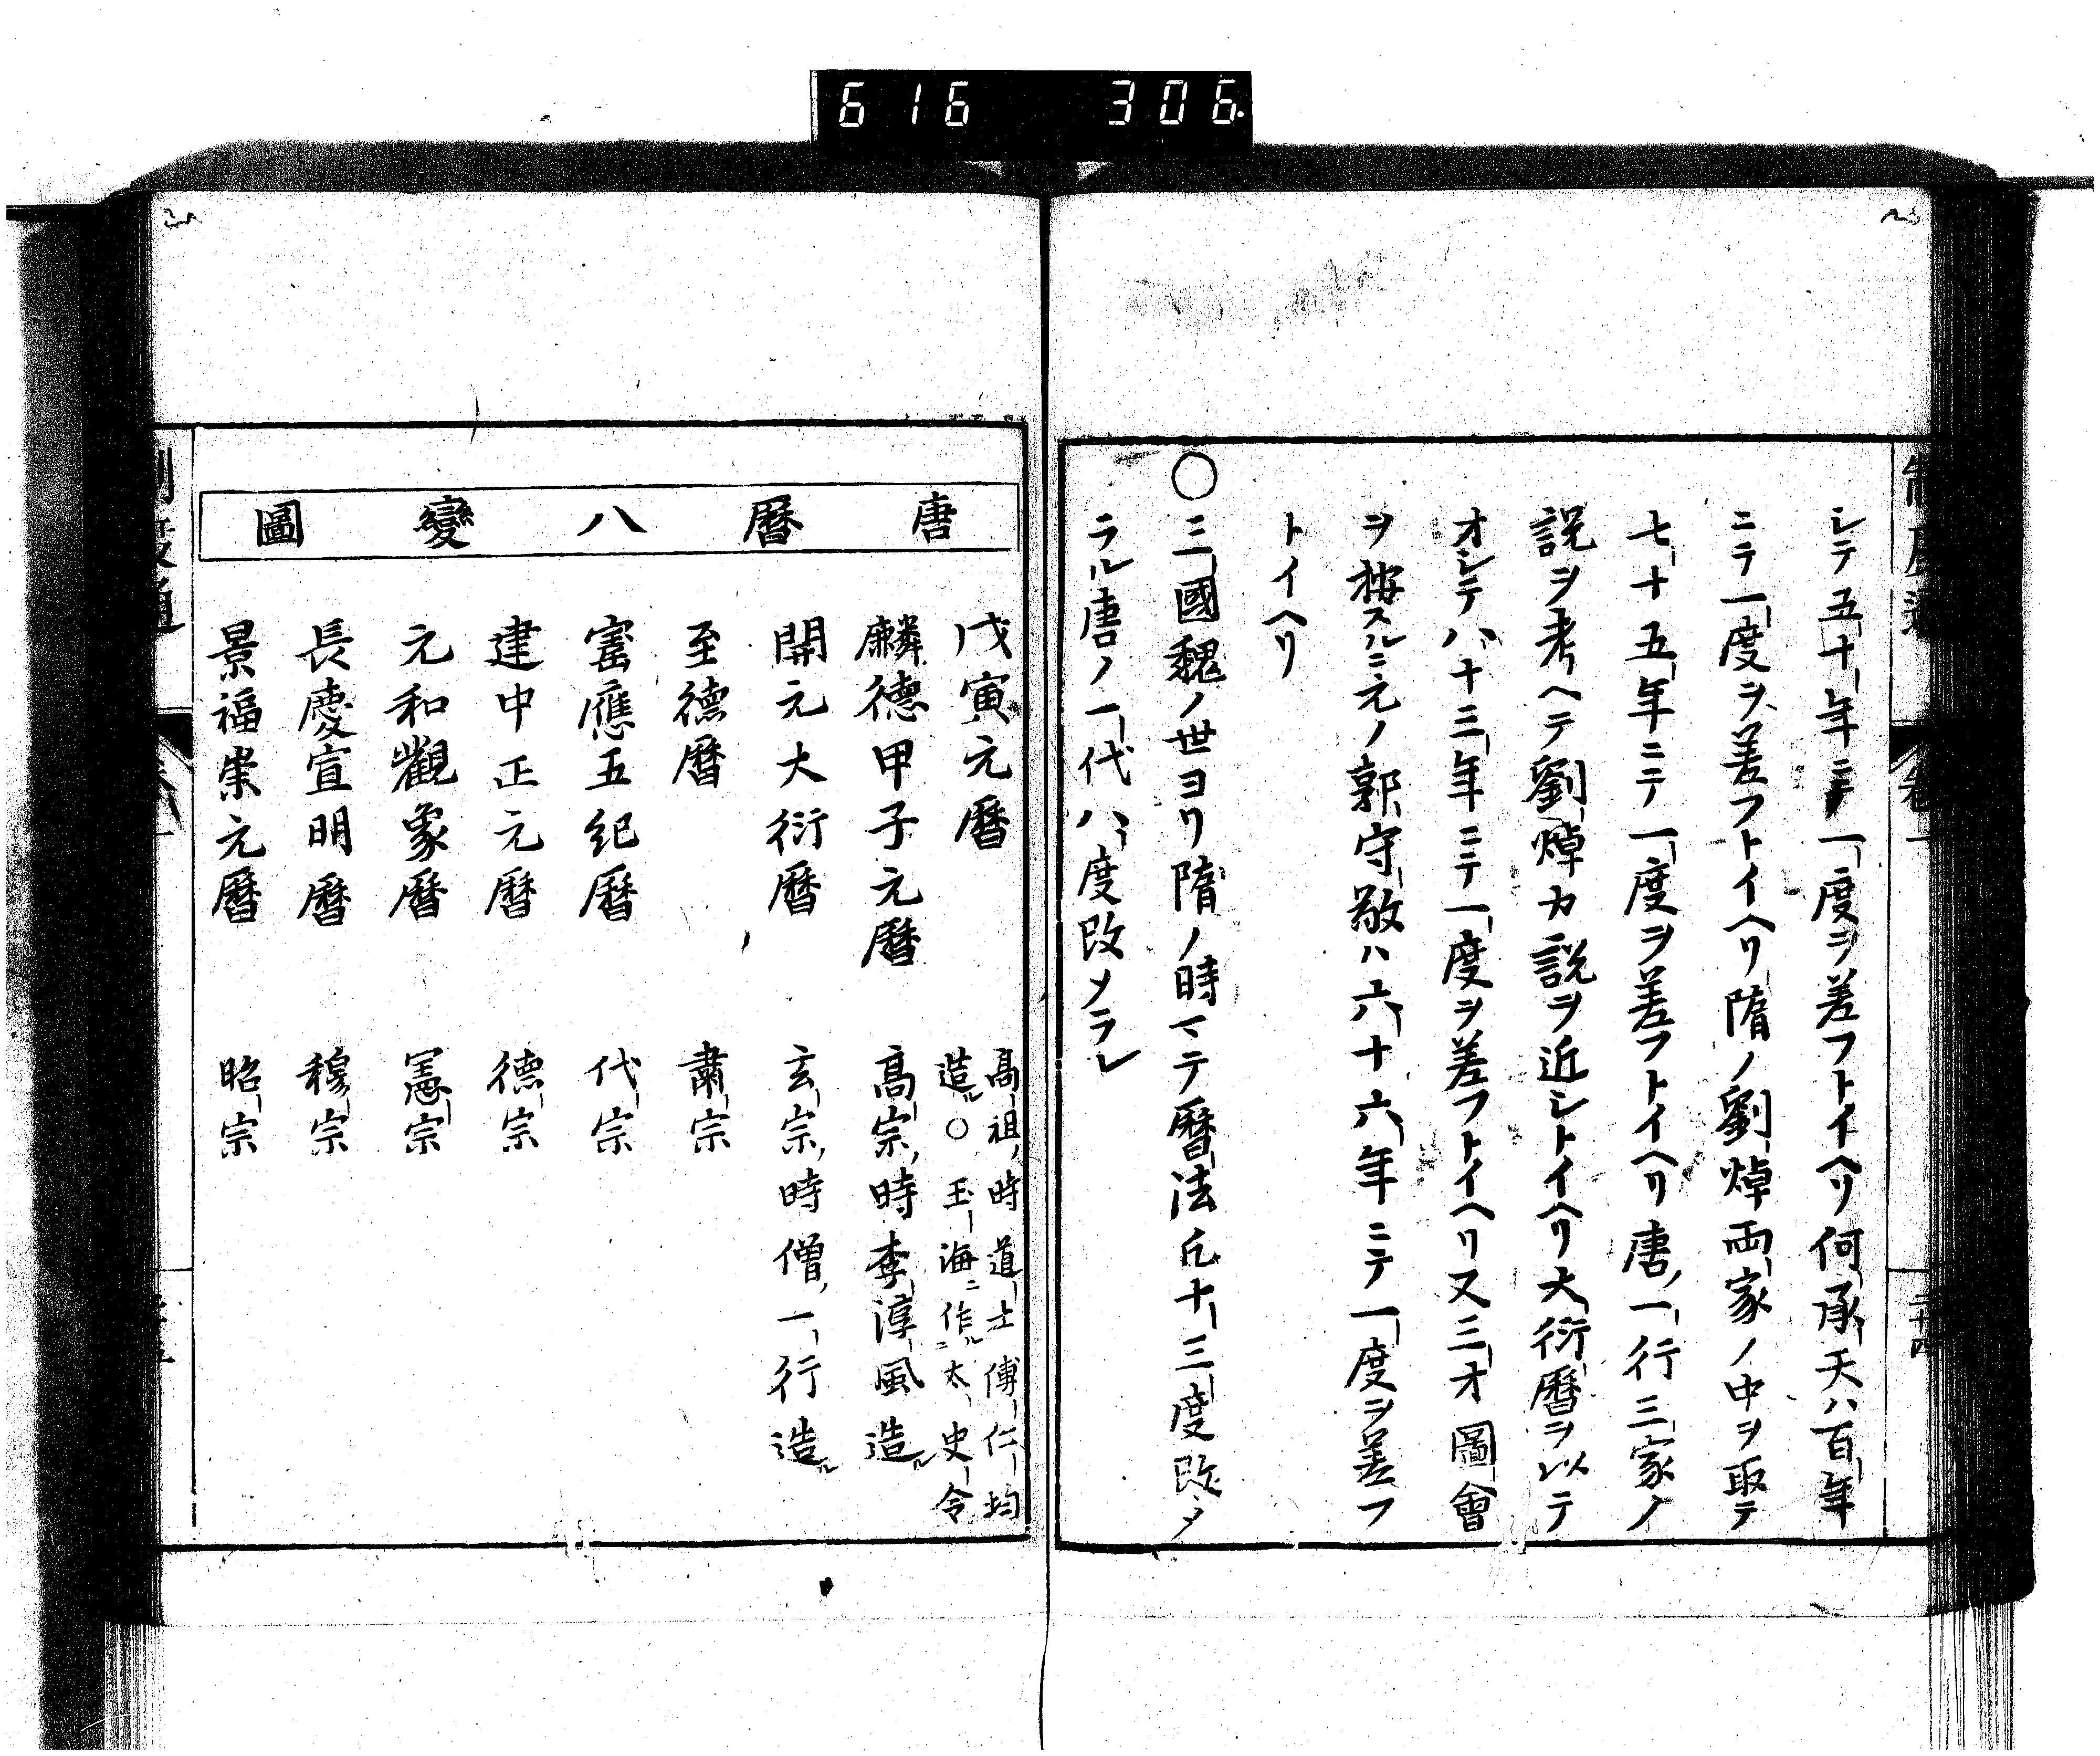 616 306
制度通 卷一 二十四
シテ五十年ニテ一度ヲ差フトイヘリ何承天ハ百年
ニテ一度ヲ差フトイヘリ隋ノ劉焯両家ノ中ヲ取テ
七十五年ニテ一度ヲ差フトイヘリ唐一行三家ノ
説ヲ考ヘテ劉焯カ説ヲ近シトイヘリ大衍曆ヲ以テ
オシテ八十三年ニテ一度ヲ差フトイヘリ又三才圖會
ヲ按スルニ元ノ郭守敬ハ六十六年ニテ一度ヲ差フ
トイヘリ
〇三國魏ノ世ヨリ隋ノ時マテ曆法凡十三度改メ
ラル唐ノ一代八度改メラレ
唐曆八變圖
戊寅元曆 高祖時道士傅仁均
造ル〇玉海ニ作ル太史令
麟德甲子元曆 高宗時李淳風造ル
開元大衍曆 玄宗時僧一行造ル
至德曆 肅宗
寳應五紀曆 代宗
建中正元曆 德宗
元和觀象曆 憲宗
長慶宣明曆 穆宗
景福崇元曆 昭宗